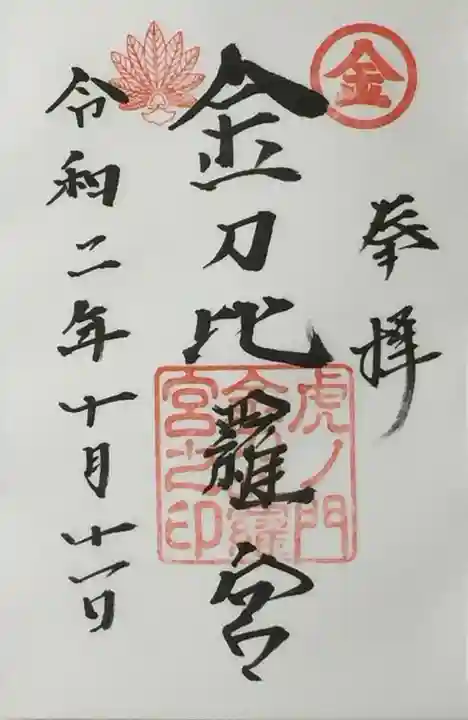 奉拝
金
金刀比羅宮
虎ノ門
金刀比羅
宮之印
令和二年十月十一日